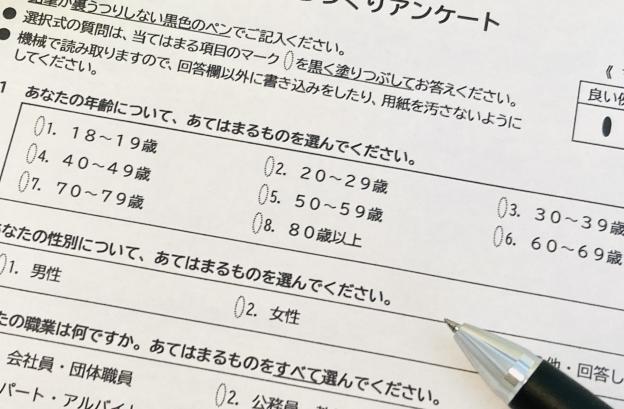 くりアンケート
裏うつりしない黒色のペンでご記入ください。
● 選択式の質問は、当てはまる項目のマーク を黒く塗りつぶしてお答えください。
● 機械で読み取りますので、回答欄以外に書き込みをしたり、用紙を汚さないように
してください。
良い
1 あなたの年齢について、あてはまるものを選んでください。
1. 18～19歳 2. 20～29歳 3. 30～39歳
4. 40～49歳 5. 50～59歳 6. 60～69歳
7. 70～79歳 8. 80歳以上
なたの性別について、あてはまるものを選んでください。
1. 男性 2. 女性 他・回答し
たの職業は何ですか。あてはまるものをすべて選んでください。
会社員・団体職員 2. 公務員
パート・アルバイト